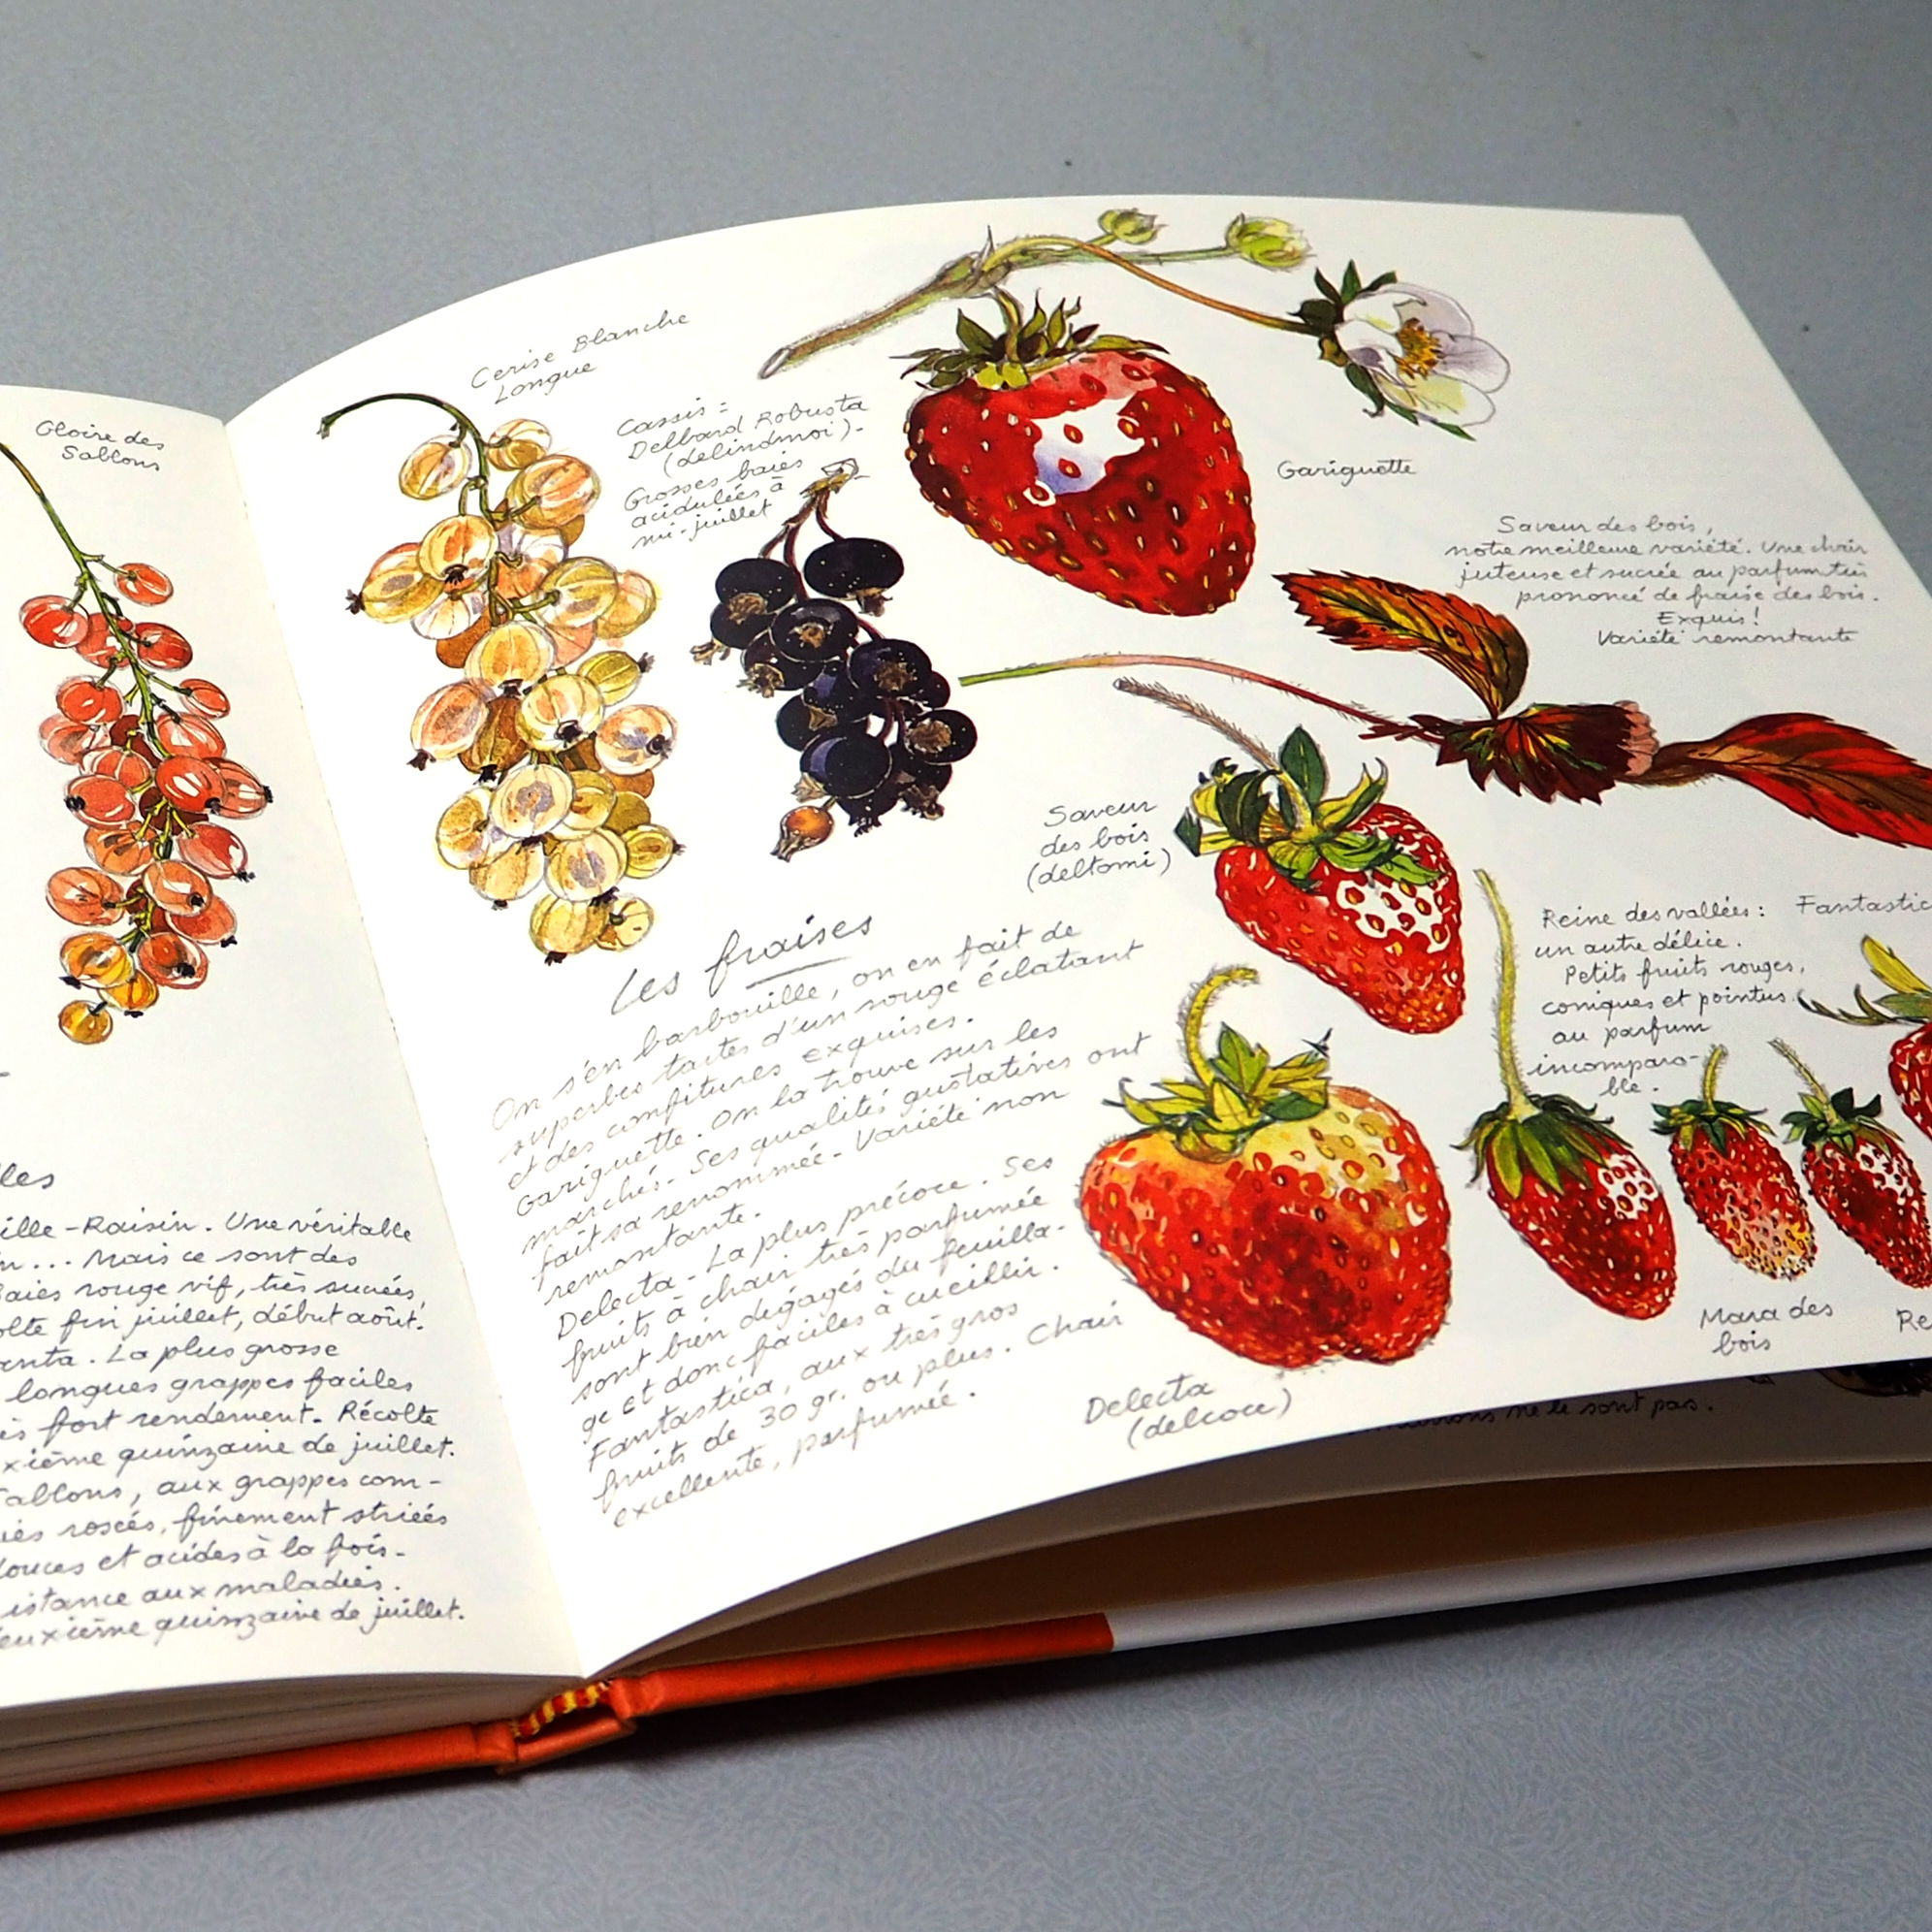 Gloire des
Sablons
lles
ille - Raisin. Une véritable
n... Mais ce sont des
Baies rouge vif, très sucrées,
olte fin juillet, début août.
anta. La plus grosse
longues grappes faciles
ès fort rendement. Récolte
xième quinzaine de juillet.
Sablons, aux grappes com-
ies rosées, finement striées
douces et acides à la fois.
istance aux maladies.
euxième quinzaine de juillet.
Cerise Blanche
Longue
Cassis :
Delbard Robusta
(delindmoi).
Grosses baies
acidulées à
mi-juillet
Gariguette
Saveur des bois,
notre meilleure variété. Une chair
juteuse et sucrée au parfum très
prononcé de fraise des bois.
Exquis!
Variété remontante
Saveur
des bois
(deltomi)
Les fraises
On s'en barbouille, on en fait de
superbes tartes d'un rouge éclatant
et des confitures exquises.
Gariguette. On la trouve sur les
marchés. Ses qualités gustatives ont
fait sa renommée. Variété non
remontante.
Delecta - La plus précoce. Ses
fruits à chair très parfumée
sont bien dégagés du feuilla-
ge et donc faciles à cueillir.
Fantastica, aux très gros
fruits de 30 gr. ou plus. Chair
excellente, parfumée.
Delecta
(delcoce)
Reine des vallées :
un autre délice.
Petits fruits rouges,
coniques et pointus
au parfum
incompara-
ble.
Fantastic
Mara des
bois
Re
ne le sont pas.